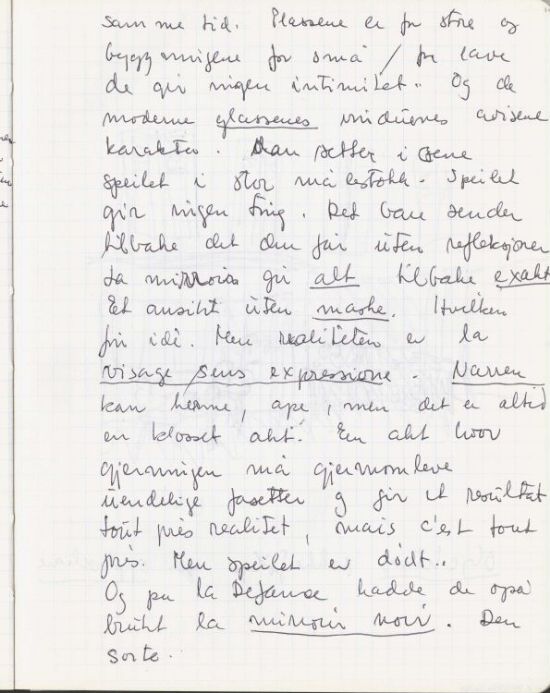 samme tid. Plassene er for store og
byggningene for små / for lave
de gir ingen intimitet. Og de
moderne glassenes vindueves avisene
karakter. Man setter i scene
speilet i stor målestokk. Speilet
gir ingen ting. Det bare sender
tilbake det den får uten refleksjoner
La mirroir gir alt tilbake exakt
Et ansikt uten maske. Hvilken
fin idè. Men realiteten er la
visage sens expressione. Narren
kan herme, ape, men det er altid
en akt. En akt hvor
gjerningen må gjennomleve
uendelige fasetter og gir et resultat
tout près realitet, mais c'est tout
près. Men speilet er dødt..
Og på la Defense hadde de også
brukt la mirroir noir. Den
sorte.